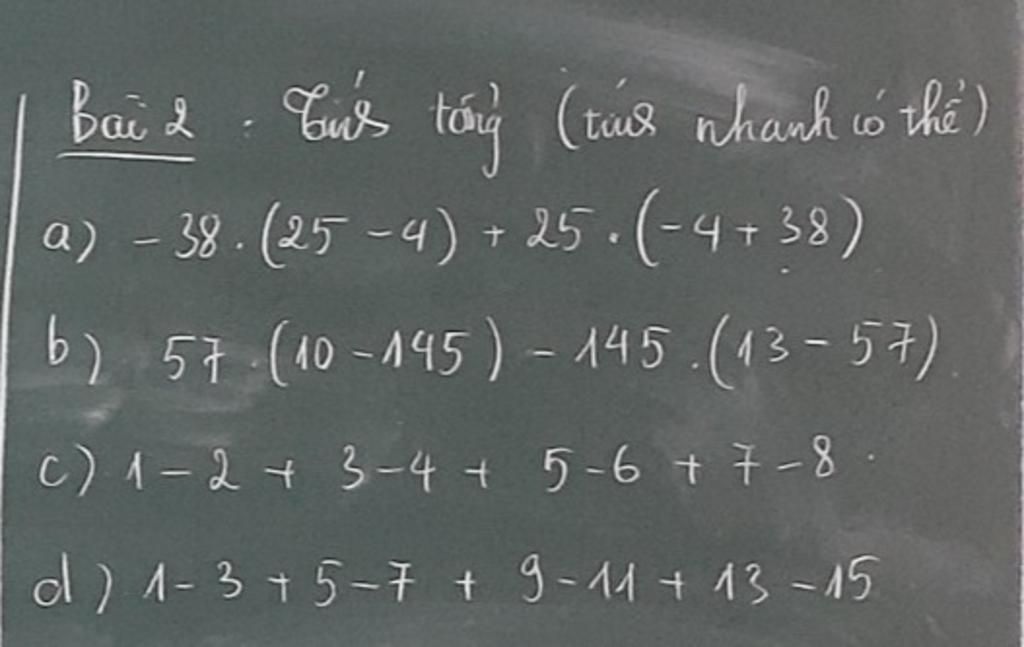 Bài 2. Tính tổng (tính nhanh có thể)
a) - 38. (25 - 4) + 25. (-4 + 38)
b) 57. (10 - 145) - 145. (13 - 57)
c) 1 - 2 + 3 - 4 + 5 - 6 + 7 - 8.
d) 1 - 3 + 5 - 7 + 9 - 11 + 13 - 15